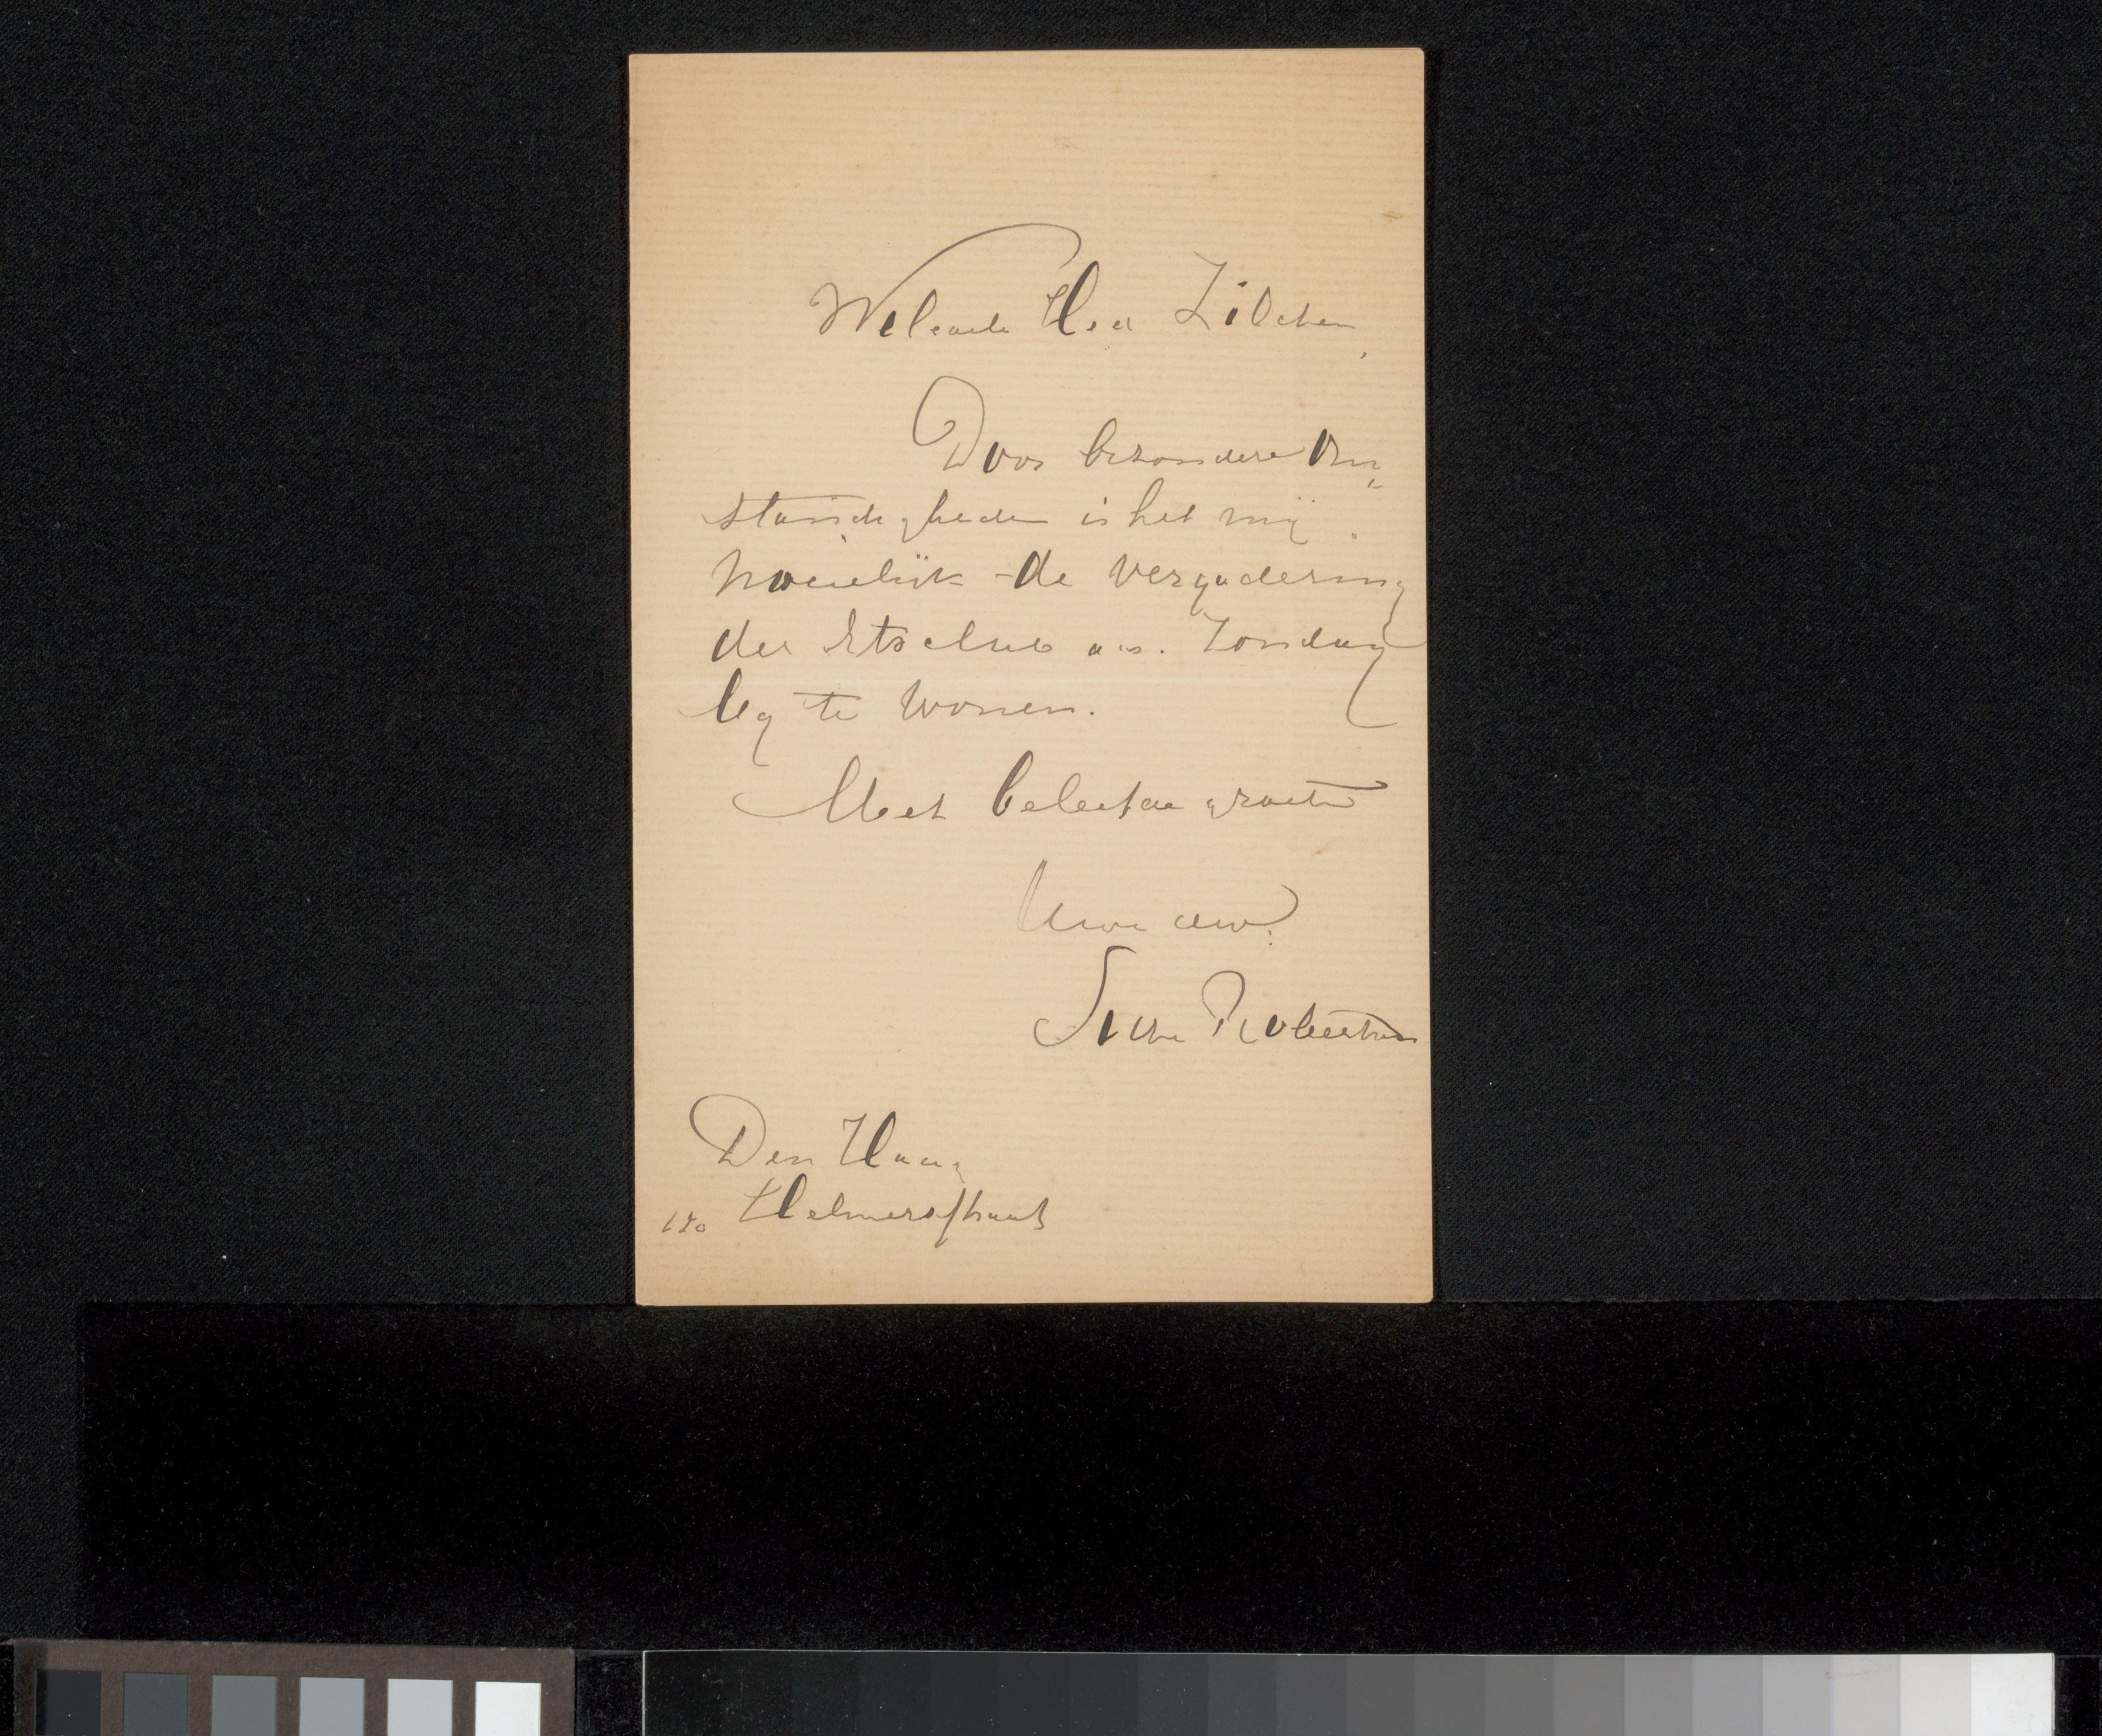 Weledele Heer Zilcken,
Door bezondere om„
standigheden is het mij
moeielijk de vergadering
der Etsclub a.s. Zondag
bij te wonen.
Met beleefde groeten
Uwe dw.
Suze Robertson
Den Haag
Helmersstraat